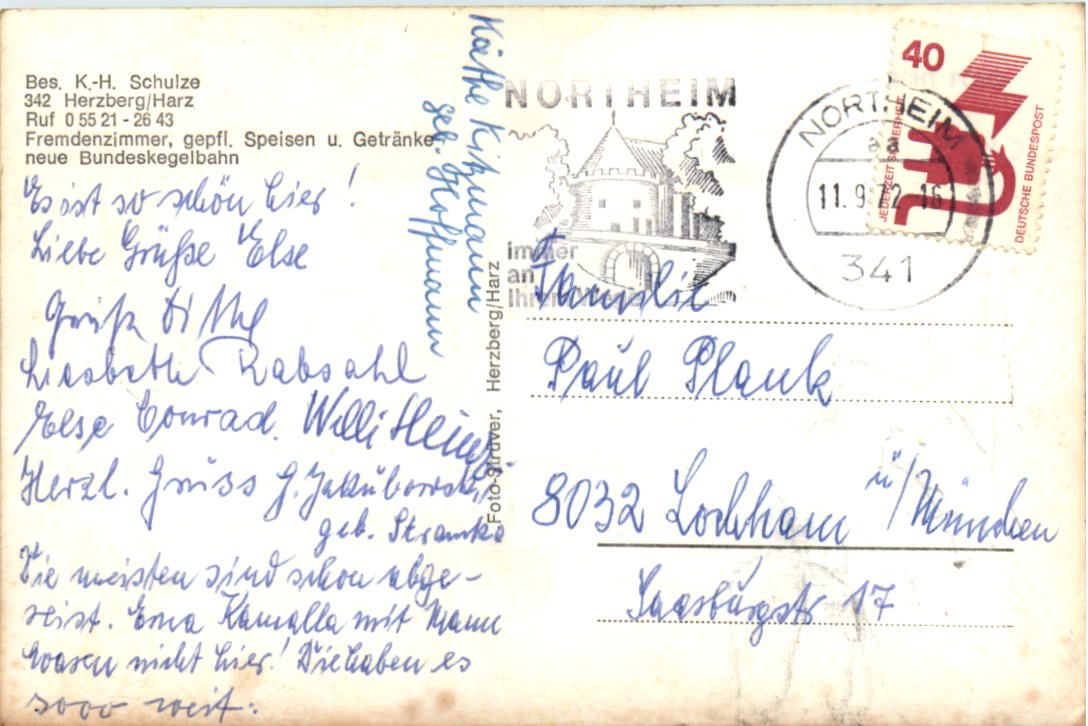 Bes. K.-H. Schulze
342 Herzberg/Harz
Ruf 0 55 21 - 26 43
Fremdenzimmer, gepfl. Speisen u. Getränke
neue Bundeskegelbahn
Es ist so schön hier!
Liebe Grüße Else
Liesbeth Rabsahl
Else Conrad. Willi
Herzl. Gruss G. Jakubowski
geb.
Die meisten sind schon abge-
reist. Erna Kamalla mit Mann
waren nicht hier! Die haben es
sooo weit.
Käthe
geb. Hoffmann
Foto-Struver, Herzberg/Harz
NORTHEIM
immer
an
Ihrem
NORTHEIM
aa
11.9.72.16
341
40
JEDERZEIT SICHERHEIT
DEUTSCHE BUNDESPOST
Familie
Paul Plank
8032 Lochham ü/München
Saarburgstr 17